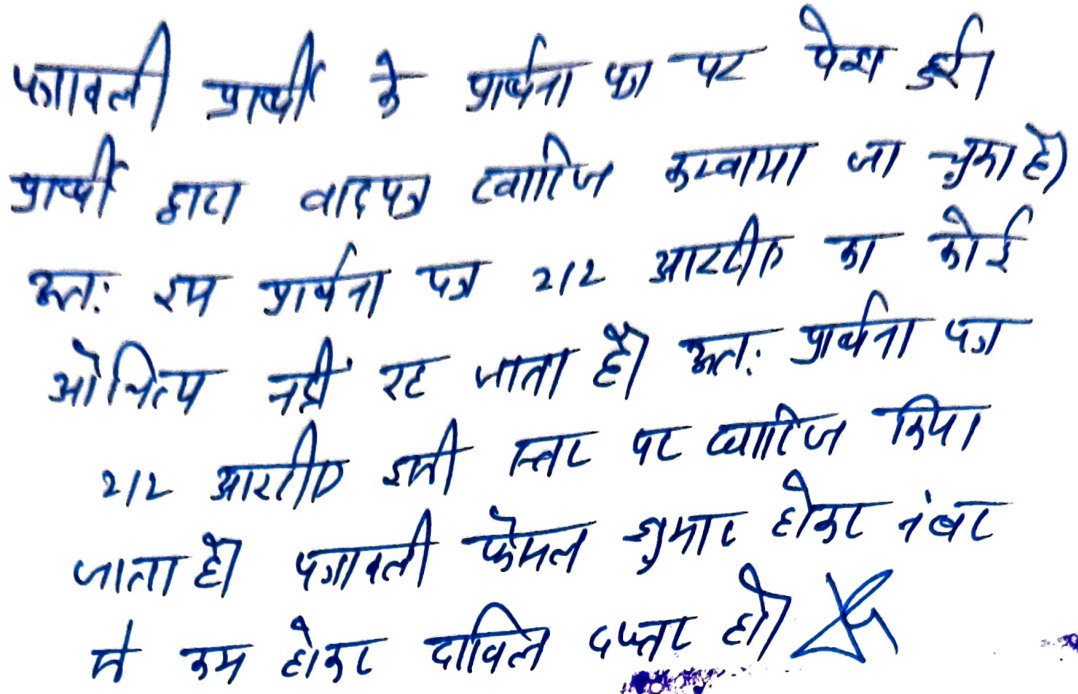 पत्रावली प्रार्थी के प्रार्थना पत्र पर पेश हुई।
प्रार्थी द्वारा वादपत्र खारिज करवाया जा चुका है।
अतः इस प्रार्थना पत्र 212 आरटीए का कोई
औचित्य नहीं रह जाता है। अतः प्रार्थना पत्र
212 आरटीए इसी स्तर पर खारिज किया
जाता है। पत्रावली फैसल शुमार होकर नंबर
से कम होकर दाखिल दफ्तर हो।